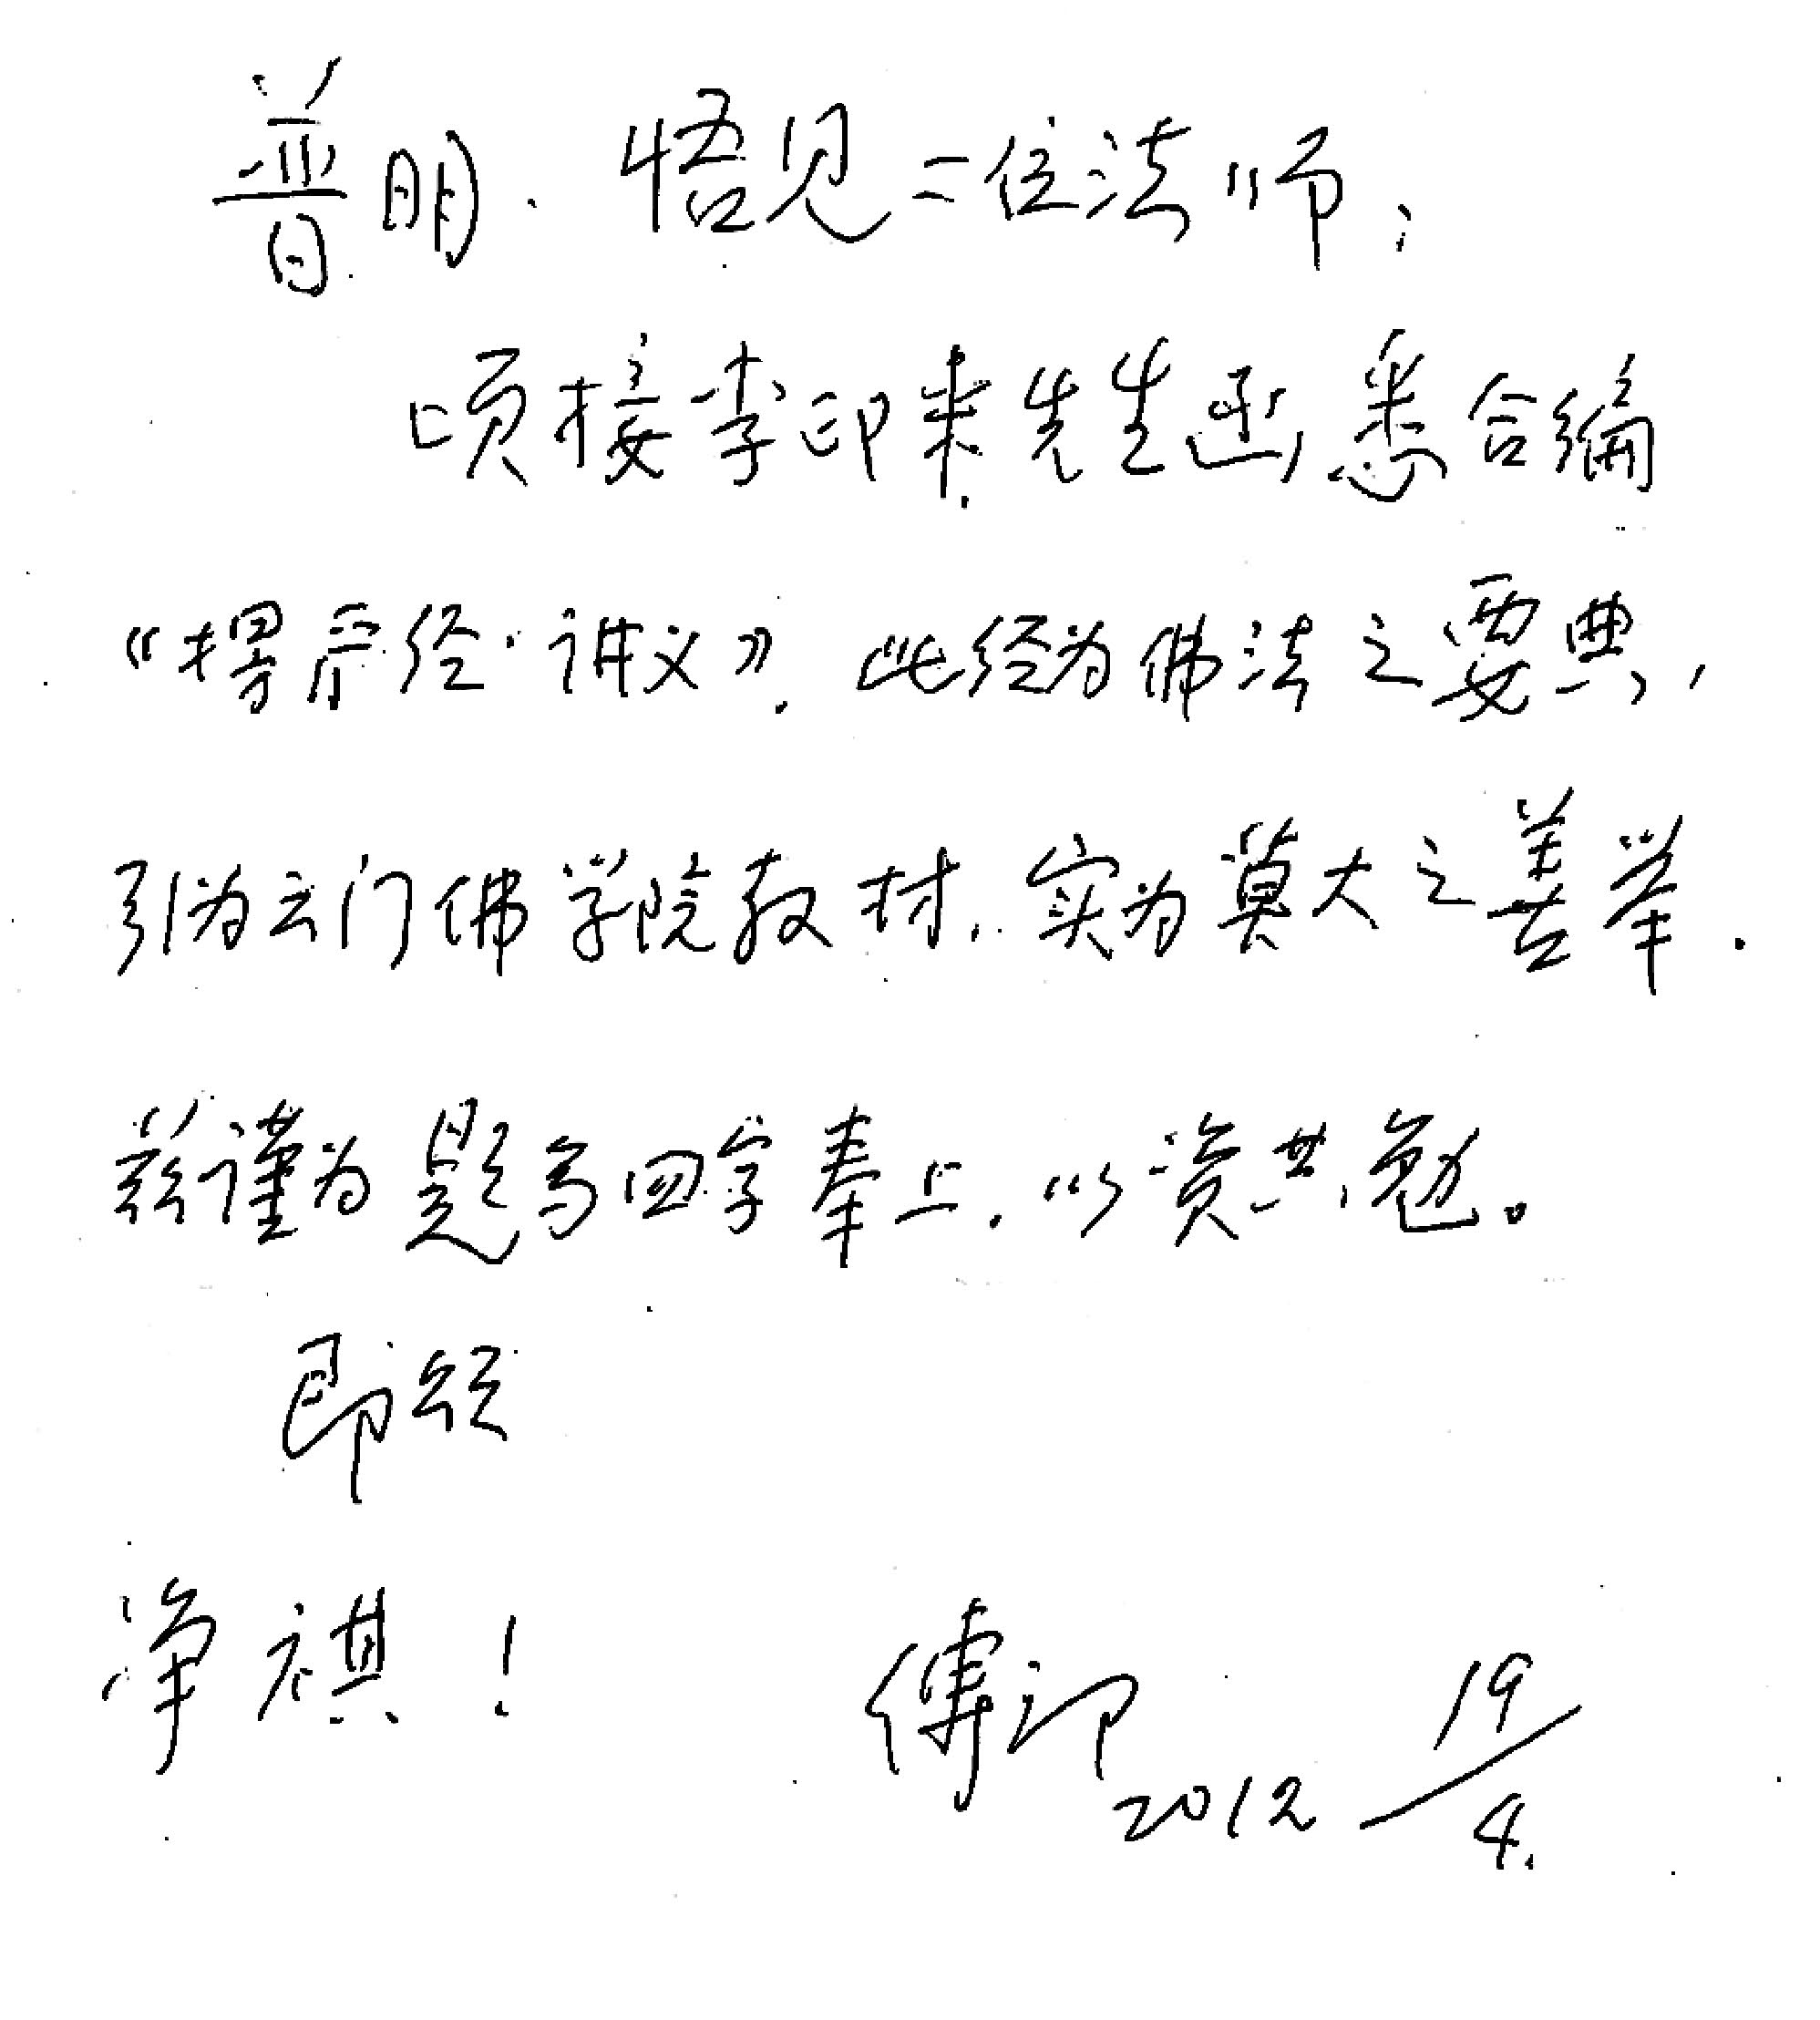 普明、悟见二位法师：
顷接李印来先生函，悉合编
《楞严经·讲义》，此经为佛法之要典，
引为云门佛学院教材，实为莫大之善举．
兹谨为题写四字奉上，以资共勉。
即颂
净祺！
傅印 2012 19/4.